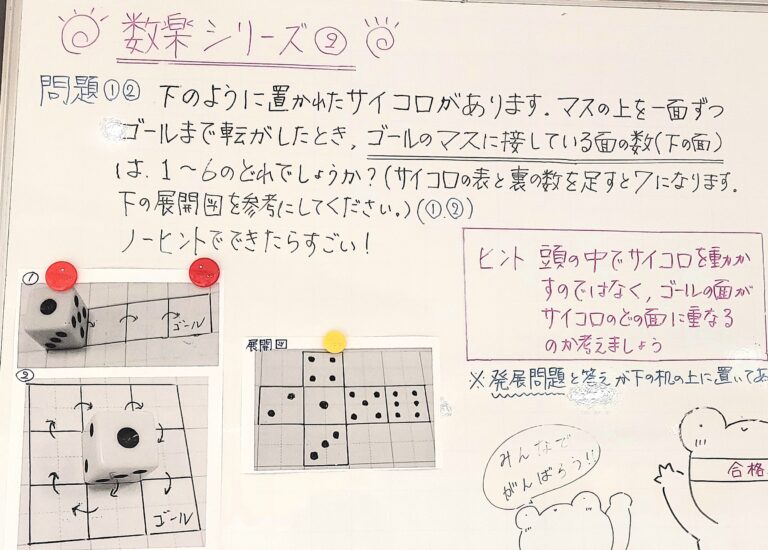 数楽シリーズ②
問題①② 下のように置かれたサイコロがあります。マスの上を一面ずつ
ゴールまで転がしたとき，ゴールのマスに接している面の数(下の面)
は，1〜6のどれでしょうか？(サイコロの表と裏の数を足すと7になります．
下の展開図を参考にしてください．)(①,②)
ノーヒントでできたらすごい！
ヒント 頭の中でサイコロを動かか
すのではなく，ゴールの面が
サイコロのどの面に重なる
のか考えましょう
①
ゴール
②
ゴール
展開図
※発展問題と答えが下の机の上に置いてあ
みんなで
がんばろう!!
合格